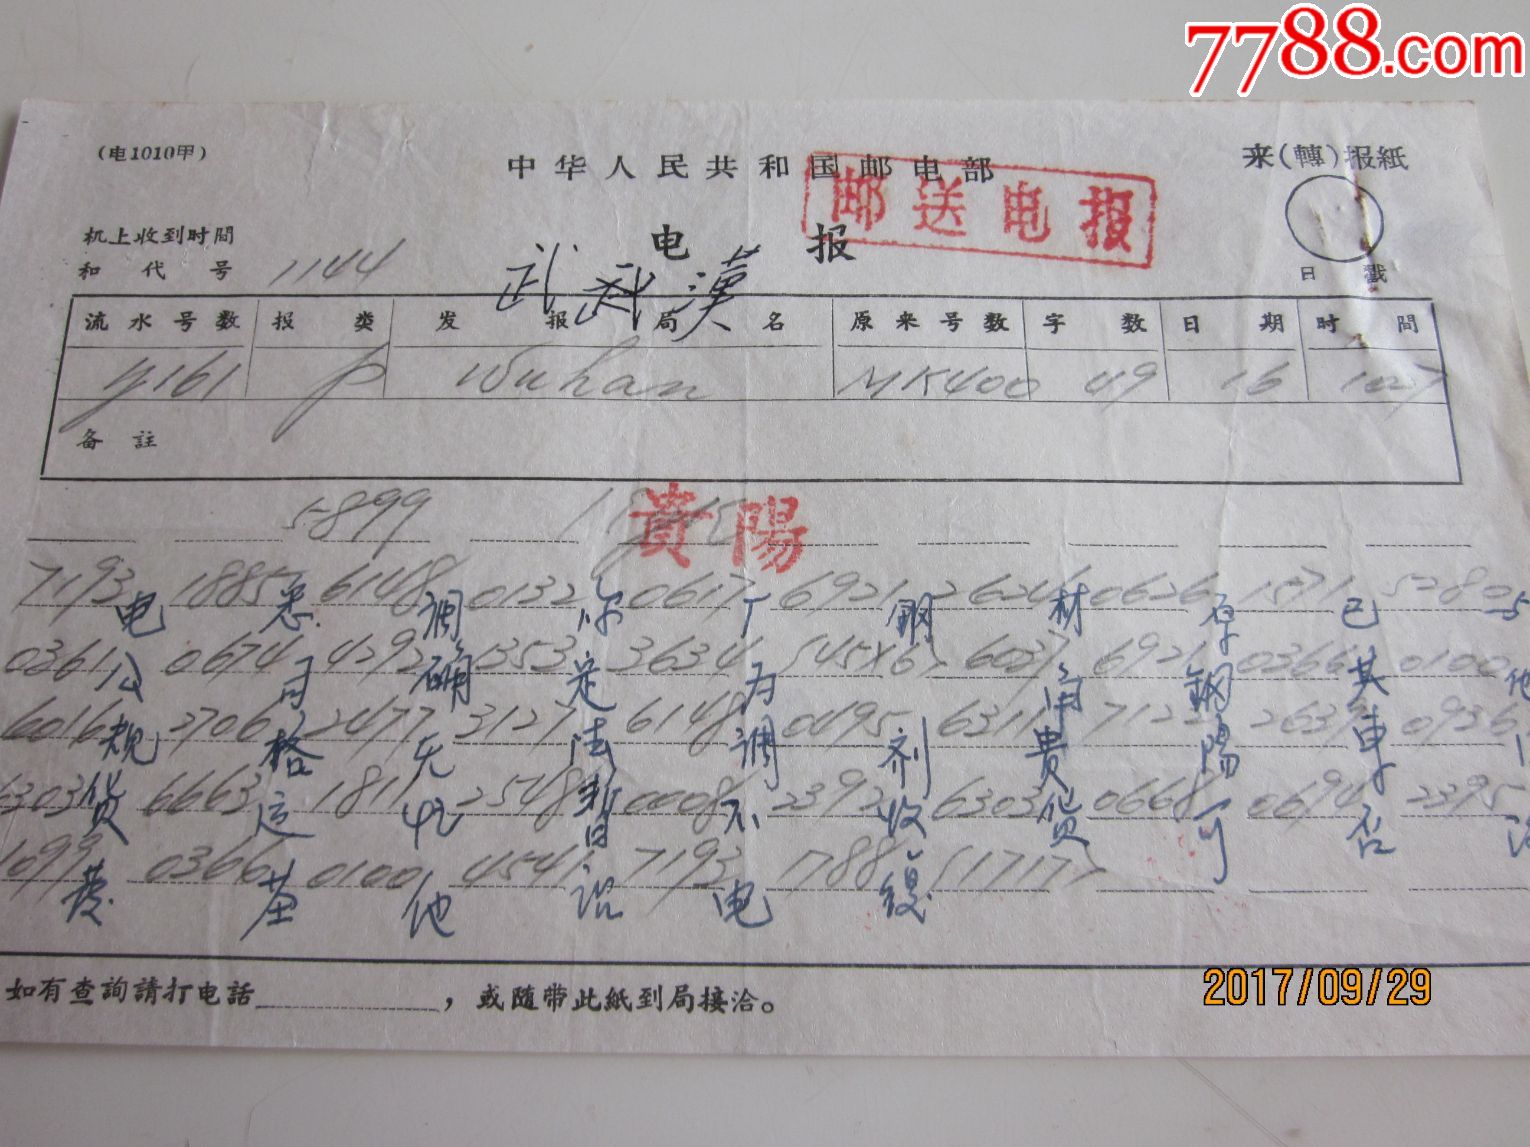 7788.com
(电1010甲)
中华人民共和国邮电部
来(轉)报紙
邮送电报
电报
机上收到时間
和代号 1144
武汉
日戳
流水号数 报类 发报局名 原来号数 字数 日期 时間
y161 p Wuhan MK400 49 16 1027
备註
5899
貴陽
7193 1885 6148 0132 0617 6921 2624 0626 1571 5280
电悉调你厂钢材早已与
0361 0674 4292 1353 3634 6037 6921 0366 0100
公司确定为角钢其他
6016 2706 2477 3127 6148 0495 6311 7122 2639 0936
规格无法调剂贵陽车
6303 6663 1811 2548 0008 2392 6303 0668 0694 2395
货运暂不收货可否
1099 0366 0100 4541 7193 1788 (1717)
他电
如有查詢請打电話________，或随带此紙到局接洽。
2017/09/29